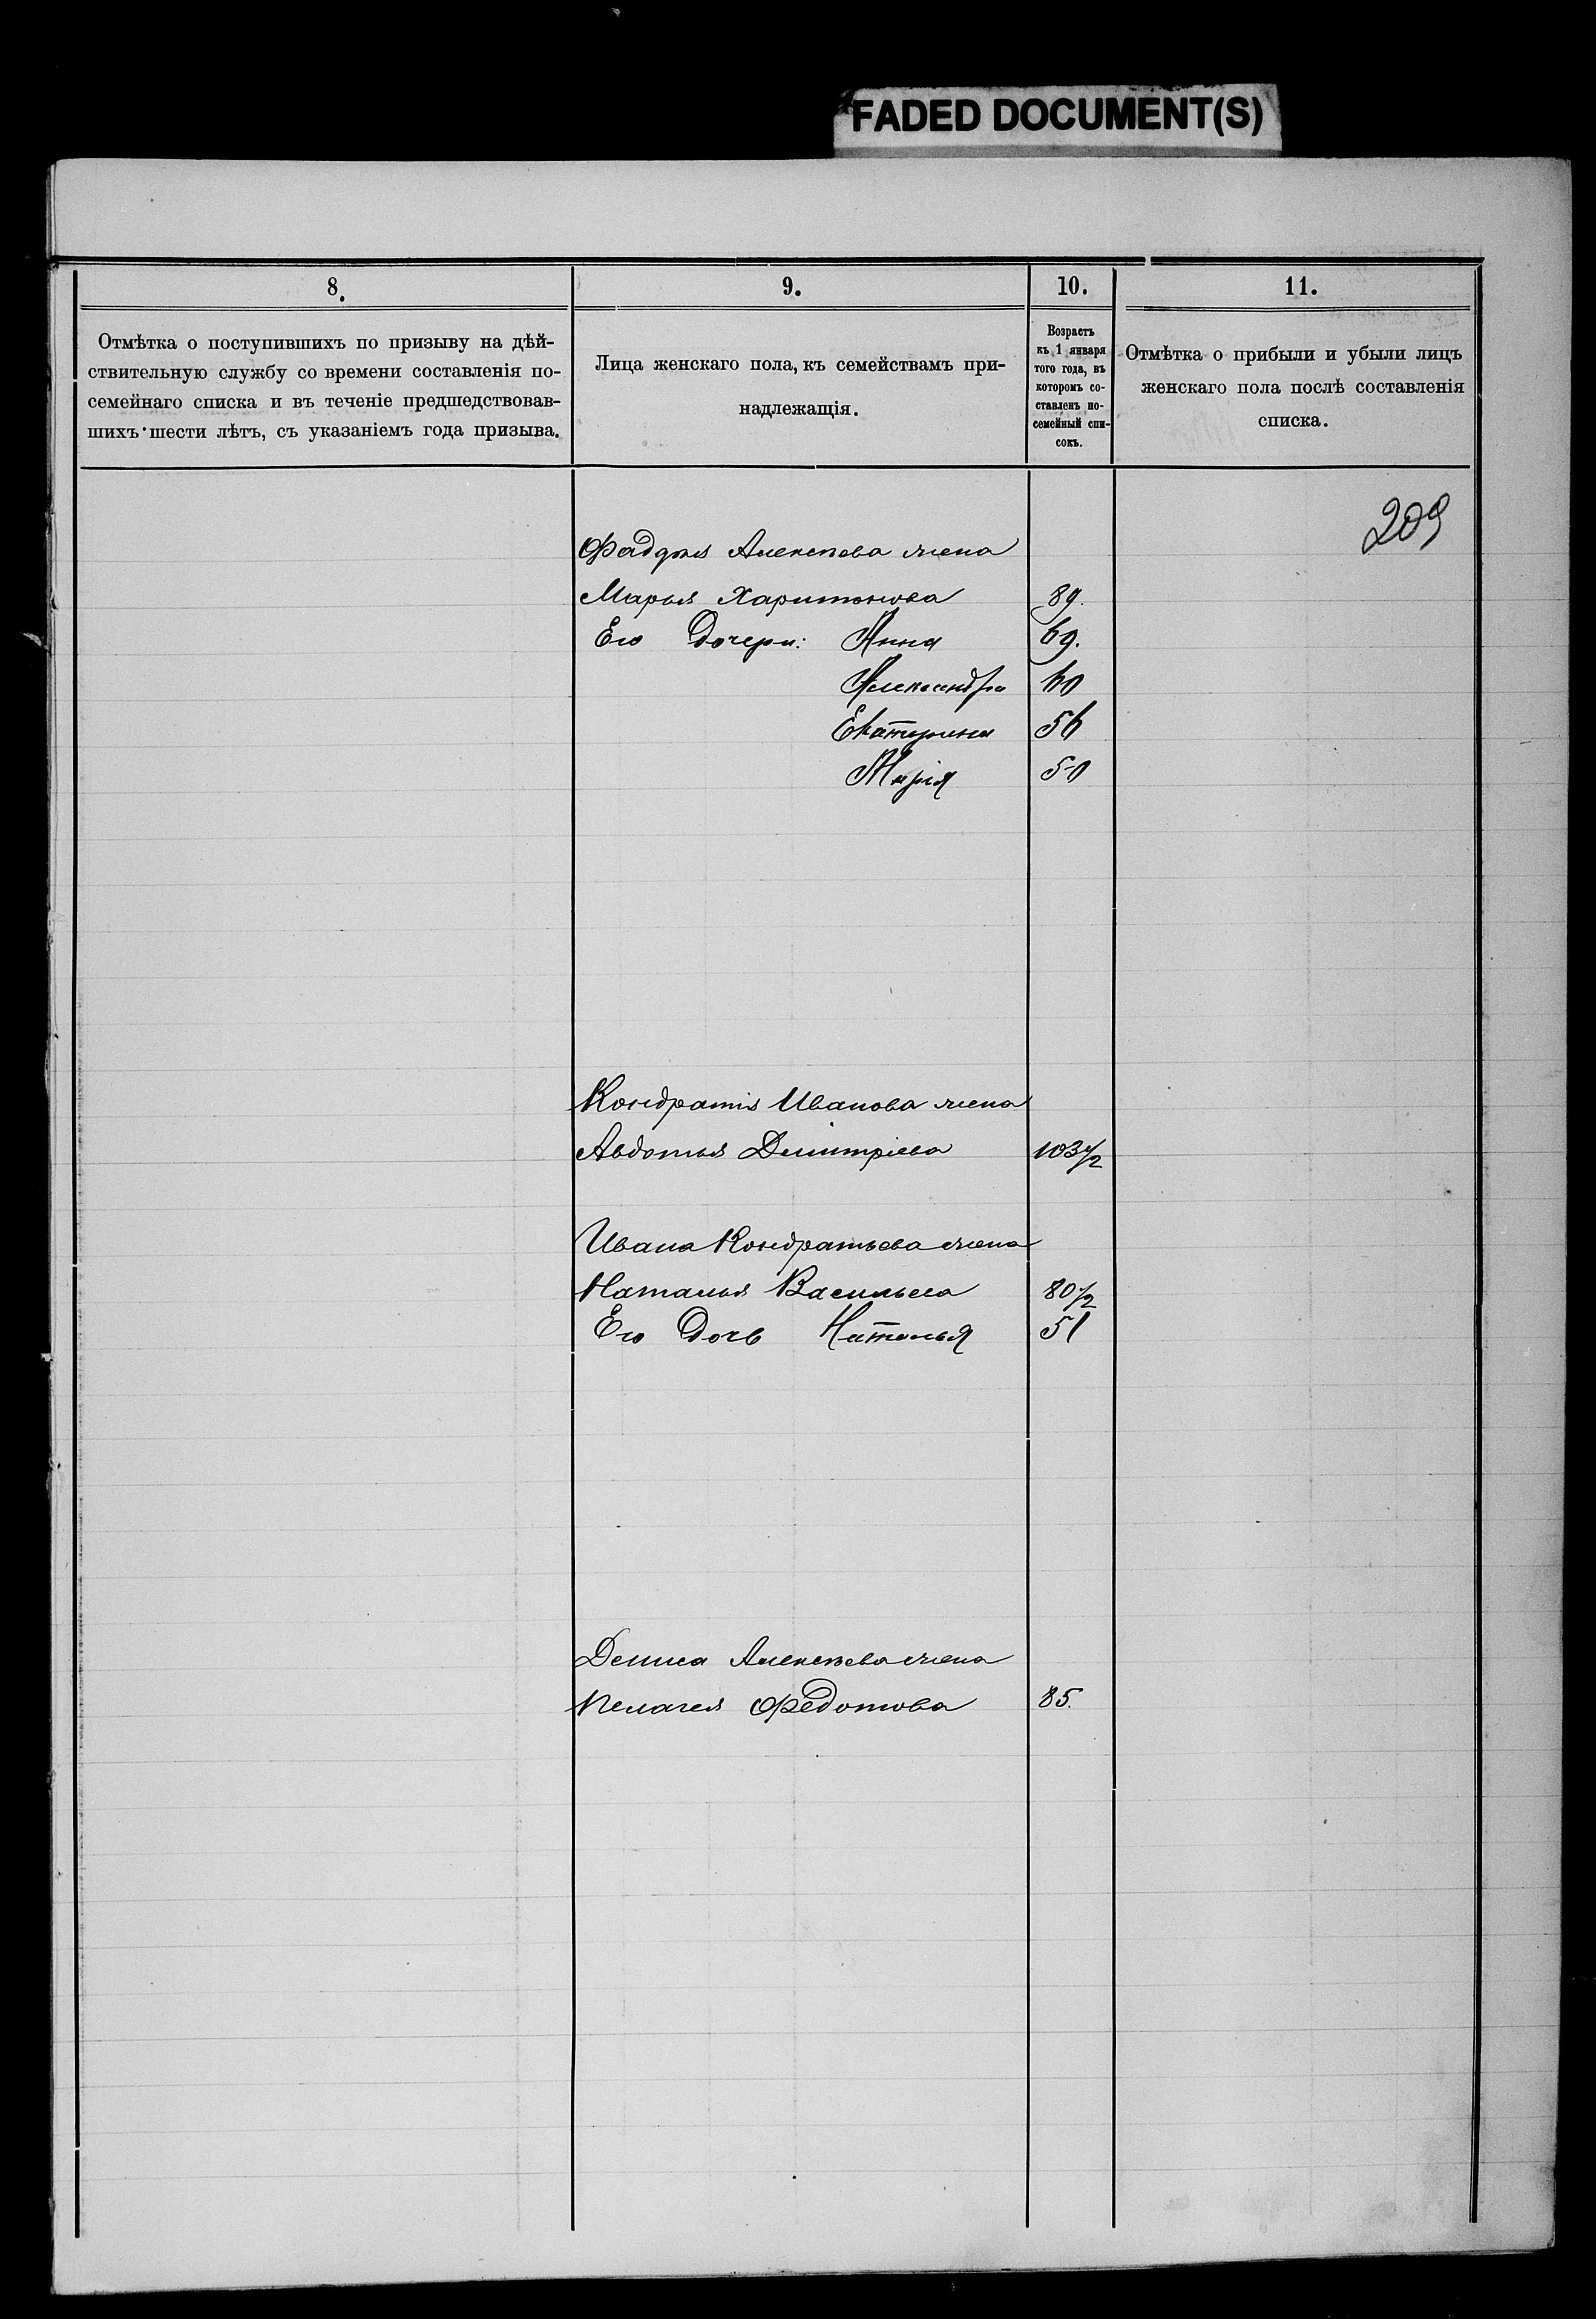 FADED DOCUMENT(S)
8.
9.
10.
11.
Отмѣтка о поступившихъ по призыву на дѣй-
ствительную службу со времени составленія по-
семейнаго списка и въ теченіе предшедствовав-
шихъ шести лѣтъ, съ указаніемъ года призыва.
Лица женскаго пола, къ семействамъ при-
надлежащія.
Возрастъ
къ 1 января
того года, въ
которомъ со-
ставленъ по-
семейный спи-
сокъ.
Отмѣтка о прибыли и убыли лицъ
женскаго пола послѣ составленія
списка.
209
Фаддѣя Алексѣева жена
Марья Харитонова 89.
Его Дочери: Анна 69.
Александра 60
Екатерина 56
Марія 50
Кондратія Иванова жена
Авдотья Димитріева 103 1/2
Ивана Кондратьева жена
Наталья Васильева 80 1/2
Его Дочь Наталья 51
Дениса Алексѣева жена
Пелагея Федотова 85.